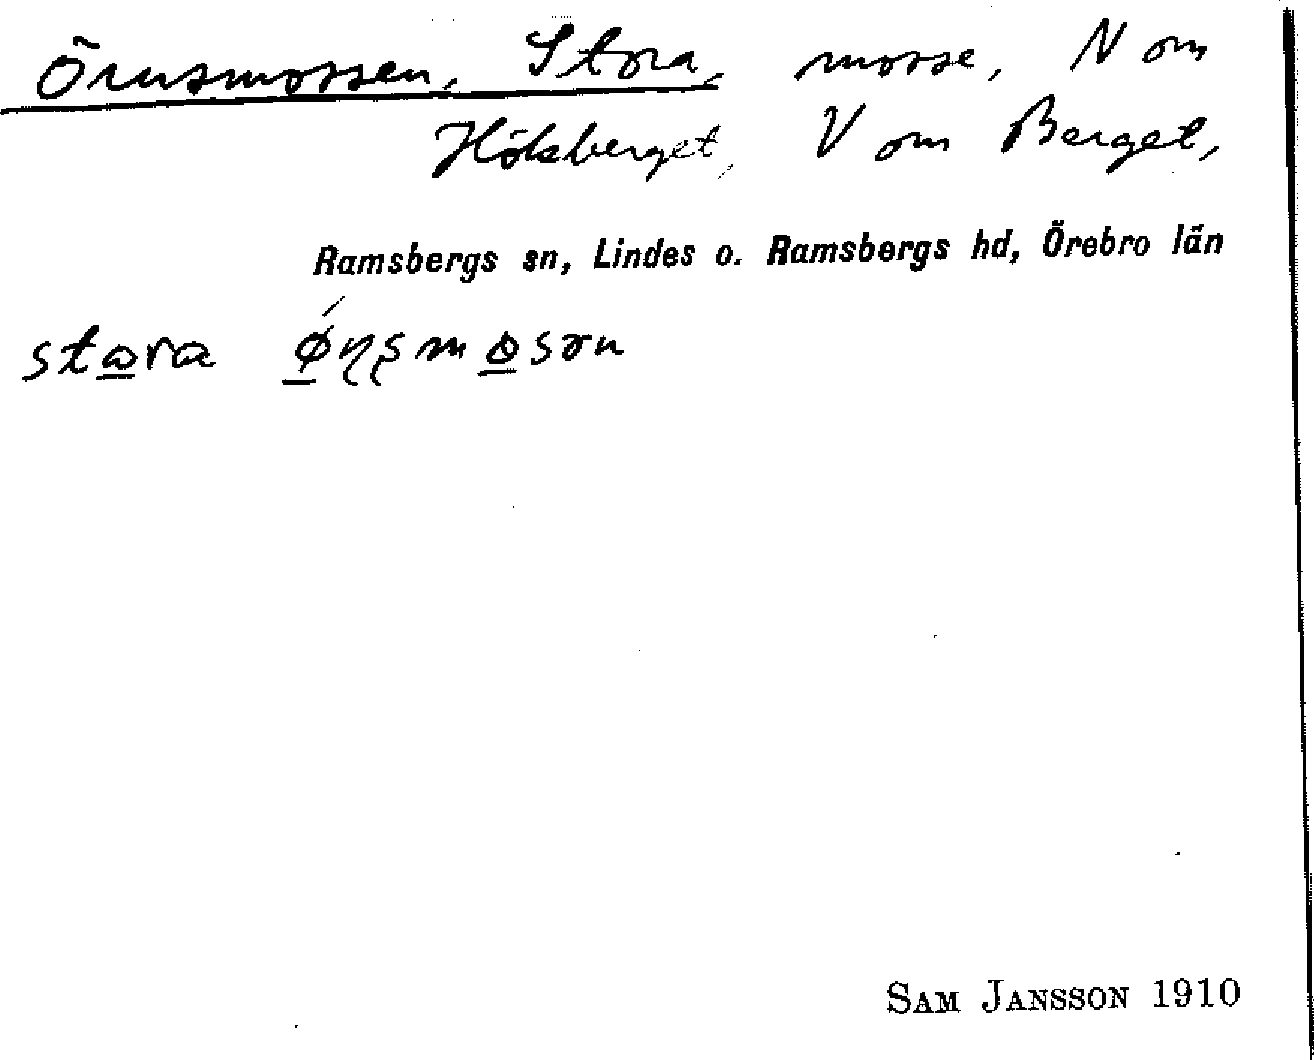 Örnsmossen, Stora, mosse, N om
Hölsberget, V om Berget,
Ramsbergs sn, Lindes o. Ramsbergs hd, Örebro län
SAM JANSSON 1910